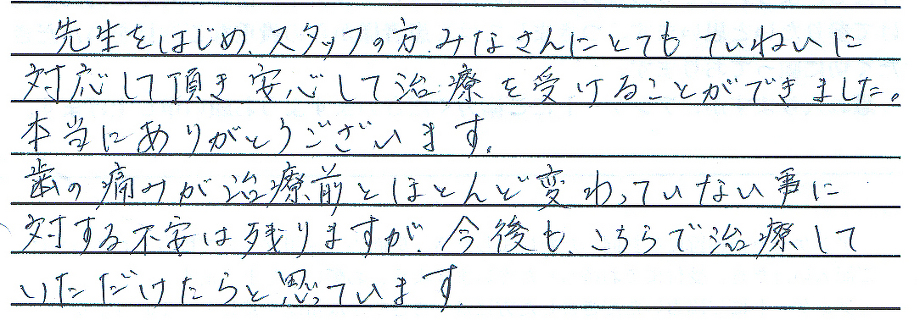 先生をはじめ、スタッフの方、みなさんにとてもていねいに
対応して頂き安心して治療を受けることができました。
本当にありがとうございます。
歯の痛みが治療前とほとんど変わっていない事に
対する不安は残りますが、今後も、こちらで治療して
いただけたらと思っています。